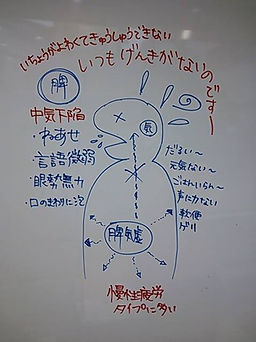 いちょうがよわくてきゅうしゅうできない
いつもげんきがないの
でーす
脾
中気下陥
・ねあせ
・言語微弱
・眼勢無力
・口のまわりに泡
気
だるい〜
元気ない〜
ごはんいらん〜
声に力ない
軟便
ゲリ
脾気虚
慢性疲労
タイプに多い